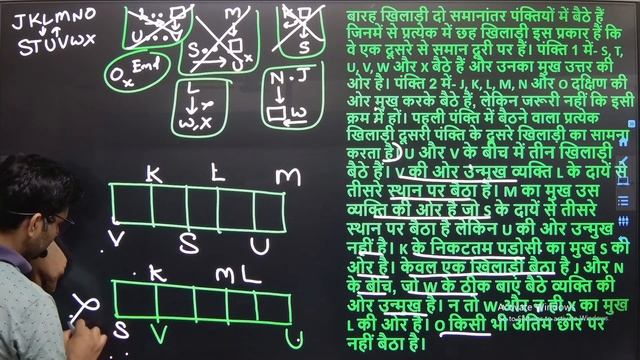 JKLMNO
STUVWX
O Emd
x
U V
M
S
U x
S
L
W, X
N . J
W
K L M
V S U
K M L
S V U
बारह खिलाड़ी दो समानांतर पंक्तियों में बैठे हैं
जिनमें से प्रत्येक में छह खिलाड़ी इस प्रकार हैं कि
वे एक दूसरे से समान दूरी पर हैं। पंक्ति 1 में- S, T,
U, V, W और X बैठे हैं और उनका मुख उत्तर की
ओर है। पंक्ति 2 में- J, K, L, M, N और O दक्षिण की
ओर मुख करके बैठे हैं, लेकिन जरूरी नहीं कि इसी
क्रम में हों। पहली पंक्ति में बैठने वाला प्रत्येक
खिलाड़ी दूसरी पंक्ति के दूसरे खिलाड़ी का सामना
करता है। U और V के बीच में तीन खिलाड़ी
बैठे हैं। V की ओर उन्मुख व्यक्ति L के दायें से
तीसरे स्थान पर बैठा है। M का मुख उस
व्यक्ति की ओर है जो S के दायें से तीसरे
स्थान पर बैठा है लेकिन U की ओर उन्मुख
नहीं है। K के निकटतम पडोसी का मुख S की
ओर है। केवल एक खिलाड़ी बैठा है J और N
के बीच, जो W के ठीक बाएं बैठे व्यक्ति की
ओर उन्मुख है। न तो W और न ही X का मुख
L की ओर है। O किसी भी अंतिम छोर पर
नहीं बैठा है।
Activate Windows